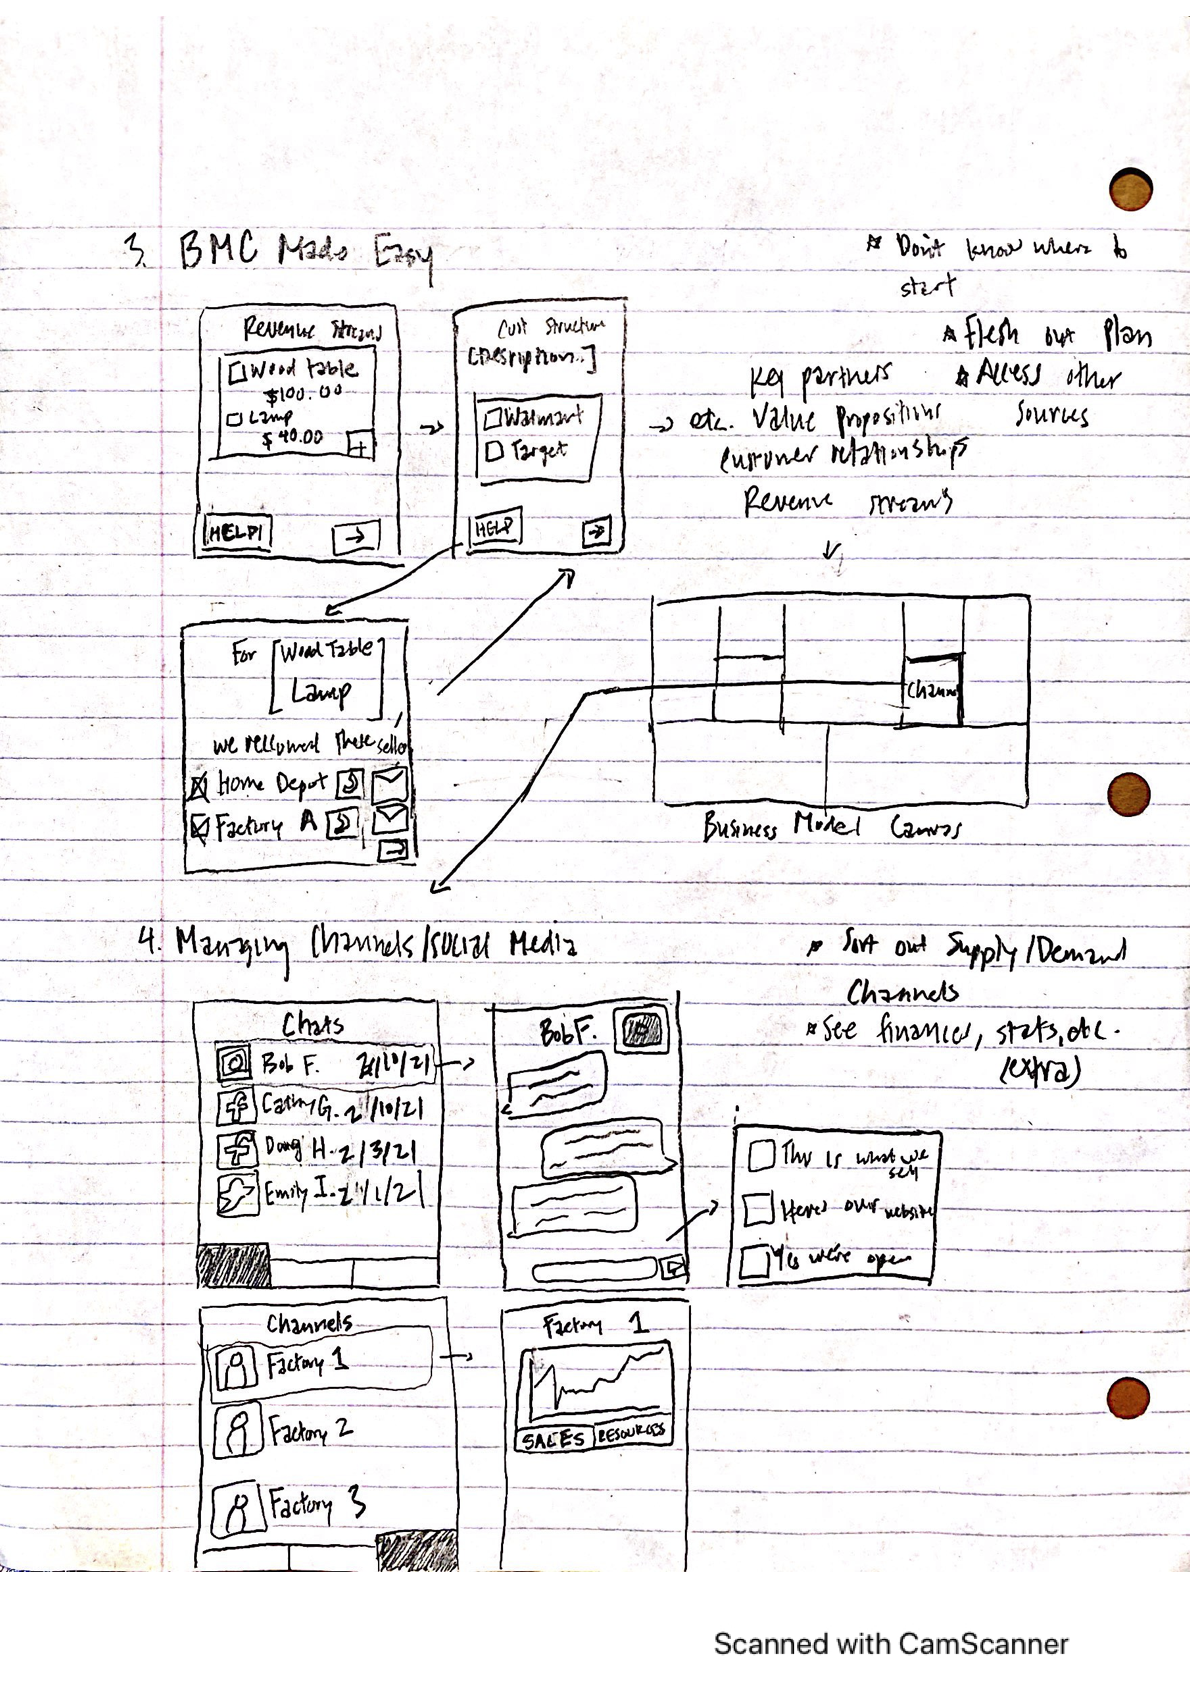 3. BMC Made Easy
* Don't know where to
start
* Flesh out plan
* Access other
sources
Revenue Streams
Wood table
$100.00
Lamp
$40.00
+
HELP!
→
Cost Structure
[Description..]
Walmart
Target
HELP
→
Key partners
→ etc. Value propositions
Customer relationships
Revenue streams
For [Wood Table
Lamp]
We recommend these sellers
Home Depot
Factory A
→
Channe
Business Model Canvas
4. Managing Channels/Social Media
* Sort out Supply/Demand
Channels
* See finances, stats, etc.
(extra)
Chats
Bob F. 2/10/21
Cathy G. 2/10/21
Doug H. 2/3/21
Emily I. 2/1/21
Bob F.
This is what we
sell
Here's our website
Yes we're open
Channels
Factory 1
Factory 2
Factory 3
Factory 1
SALES RESOURCES
Scanned with CamScanner